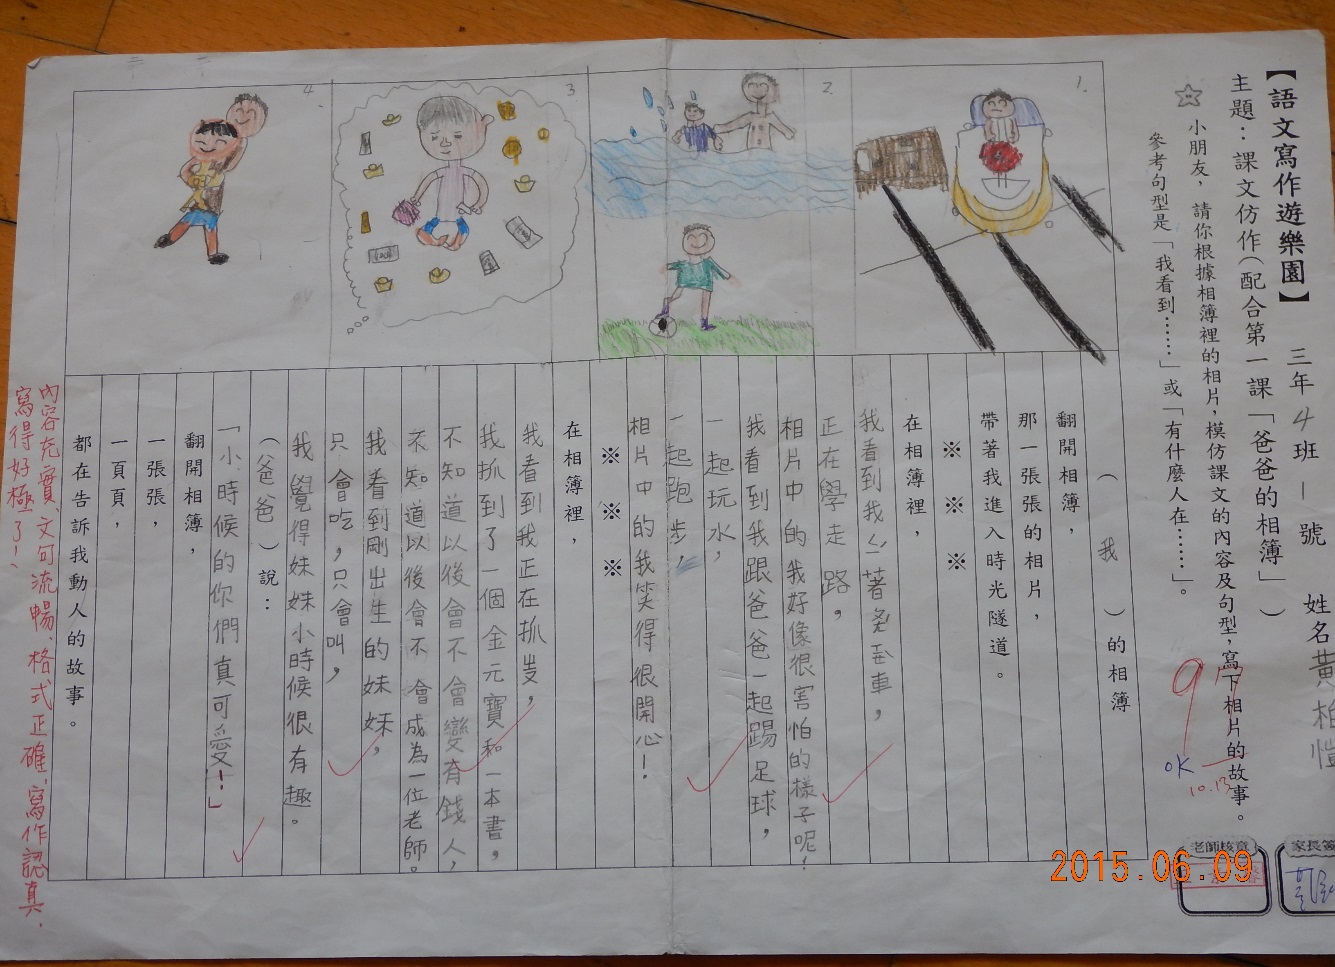 【語文寫作遊樂園】 三年4班一號 姓名黃柏愷
主題：課文仿作（配合第一課「爸爸的相簿」）
☆小朋友，請你根據相簿裡的相片，模仿課文的內容及句型，寫下相片的故事。
參考句型是「我看到……」或「有什麼人在……」。
OK
10.13
老師核章
家長簽
1.
2.
3
4.
（我）的相簿
翻開相簿，
那一張張的相片，
帶著我進入時光隧道。
※ ※ ※
在相簿裡，
我看到我ㄙ著
車，
正在學走路，
相片中的我好像很害怕的樣子呢！
我看到我跟爸爸一起踢足球，
一起玩水，
一起跑步，
相片中的我笑得很開心！
※ ※ ※
在相簿裡，
我看到我正在抓
，
我抓到了一個金元寶和一本書，
不知道以後會不會變有錢人，
不知道以後會不會成為一位老師。
我看到剛出生的妹妹，
只會吃，只會叫，
我覺得妹妹小時候很有趣。
（爸爸）說：
「小時候的你們真可愛！」
翻開相簿，
一張張，
一頁頁，
都在告訴我動人的故事。
內容充實、文句流暢、格式正確，寫作認真，
寫得好極了！
2015.06.09